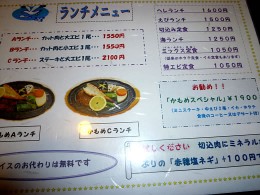 ランチメニュー
Aランチ・・・カット肉と大エビ1尾・・・1550円
Bランチ・・・カット肉と小エビ3尾・・・1550円
Cランチ・・・ステーキと大エビ1尾・・・2100円
ヘレランチ 1600円
えびランチ 1600円
切込み定食 1250円
海ランチ 1250円
ミックス定食 1250円
特エビ定食 1250円
お勧め!!
「かもめスペシャル」¥1900
食後のコーヒー又は
かもめAランチ
かもめCランチ
イスのお代わりは無料です
ください 切込肉にミネラル
よりの「赤穂塩ネギ」+100円で